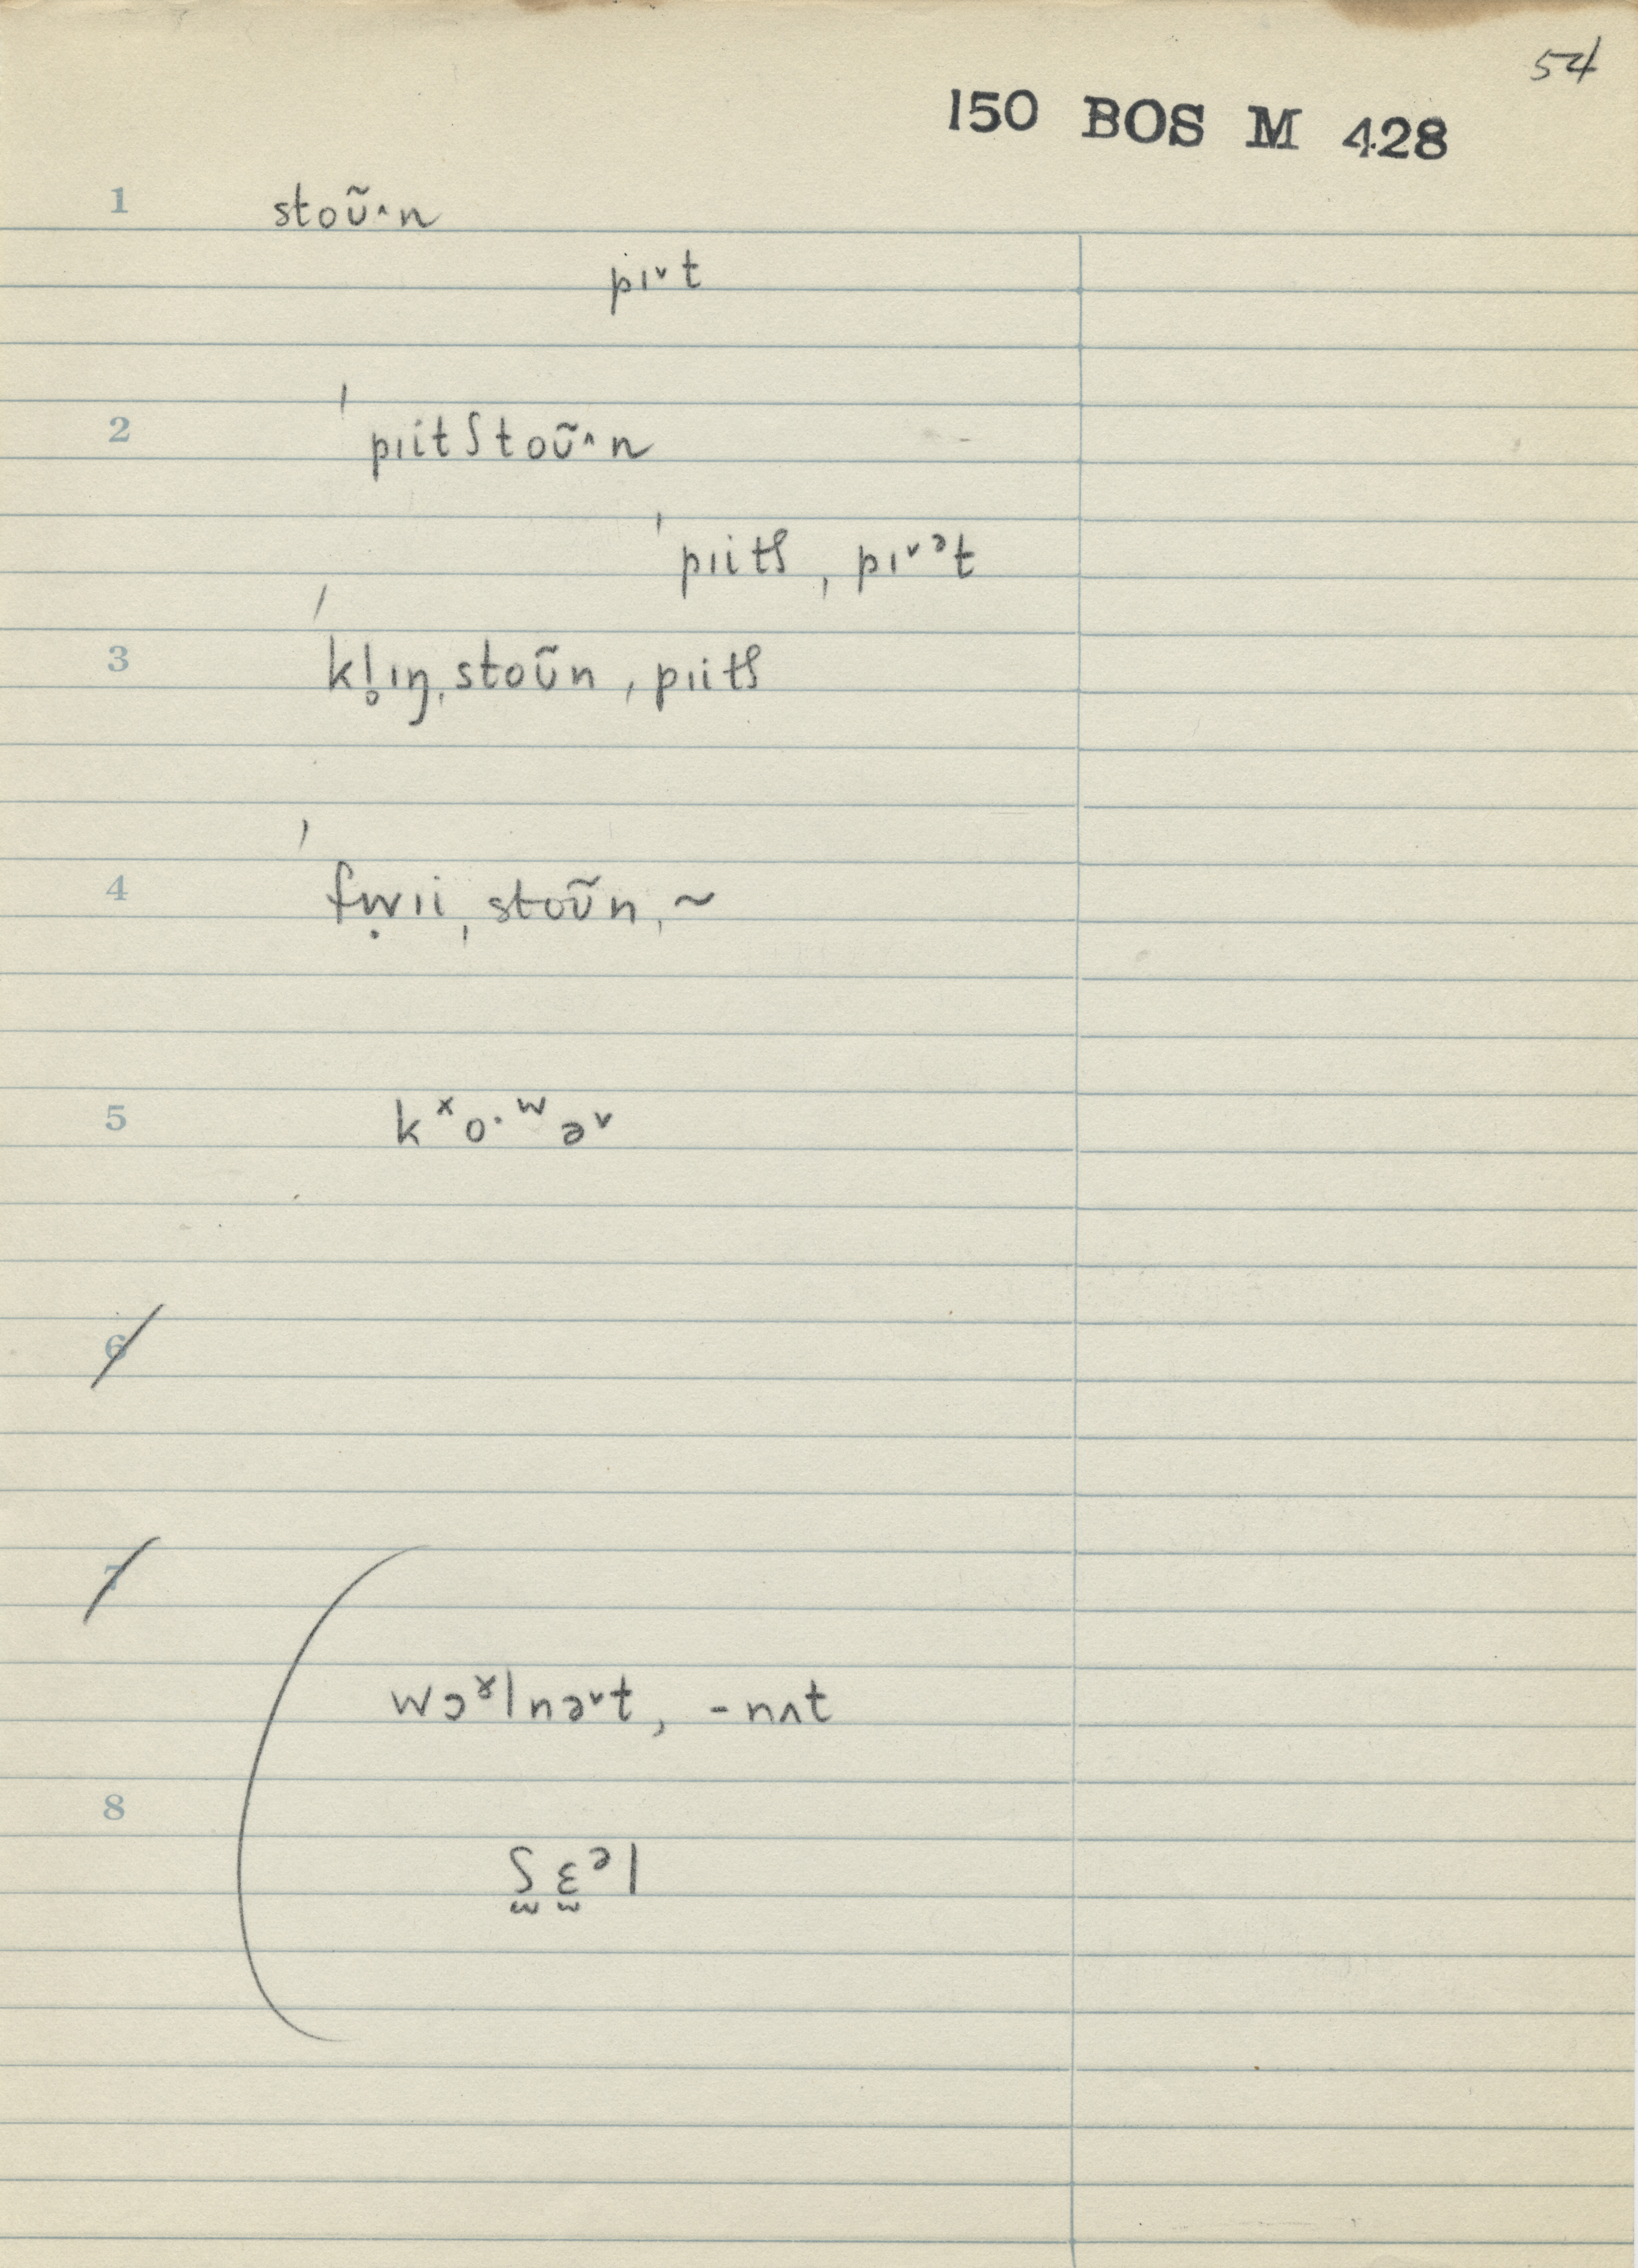 54
150 BOS M 428
1 stoʊ̃˄n
pɪ˅t
2 ˈpɪitʃtoʊ̃˄n
ˈpɪitʃ, pɪ˅ᵊt
3 ˈkl̥ɪŋ, stoʊ̃n, pɪitʃ
4 ˈfẉɪi, stoʊ̃n, ~
5 kˣo·ʷə˅
6
7
wɔˠlnə˅t, -nʌt
8
ʃ̫ɛ̫ᵊl